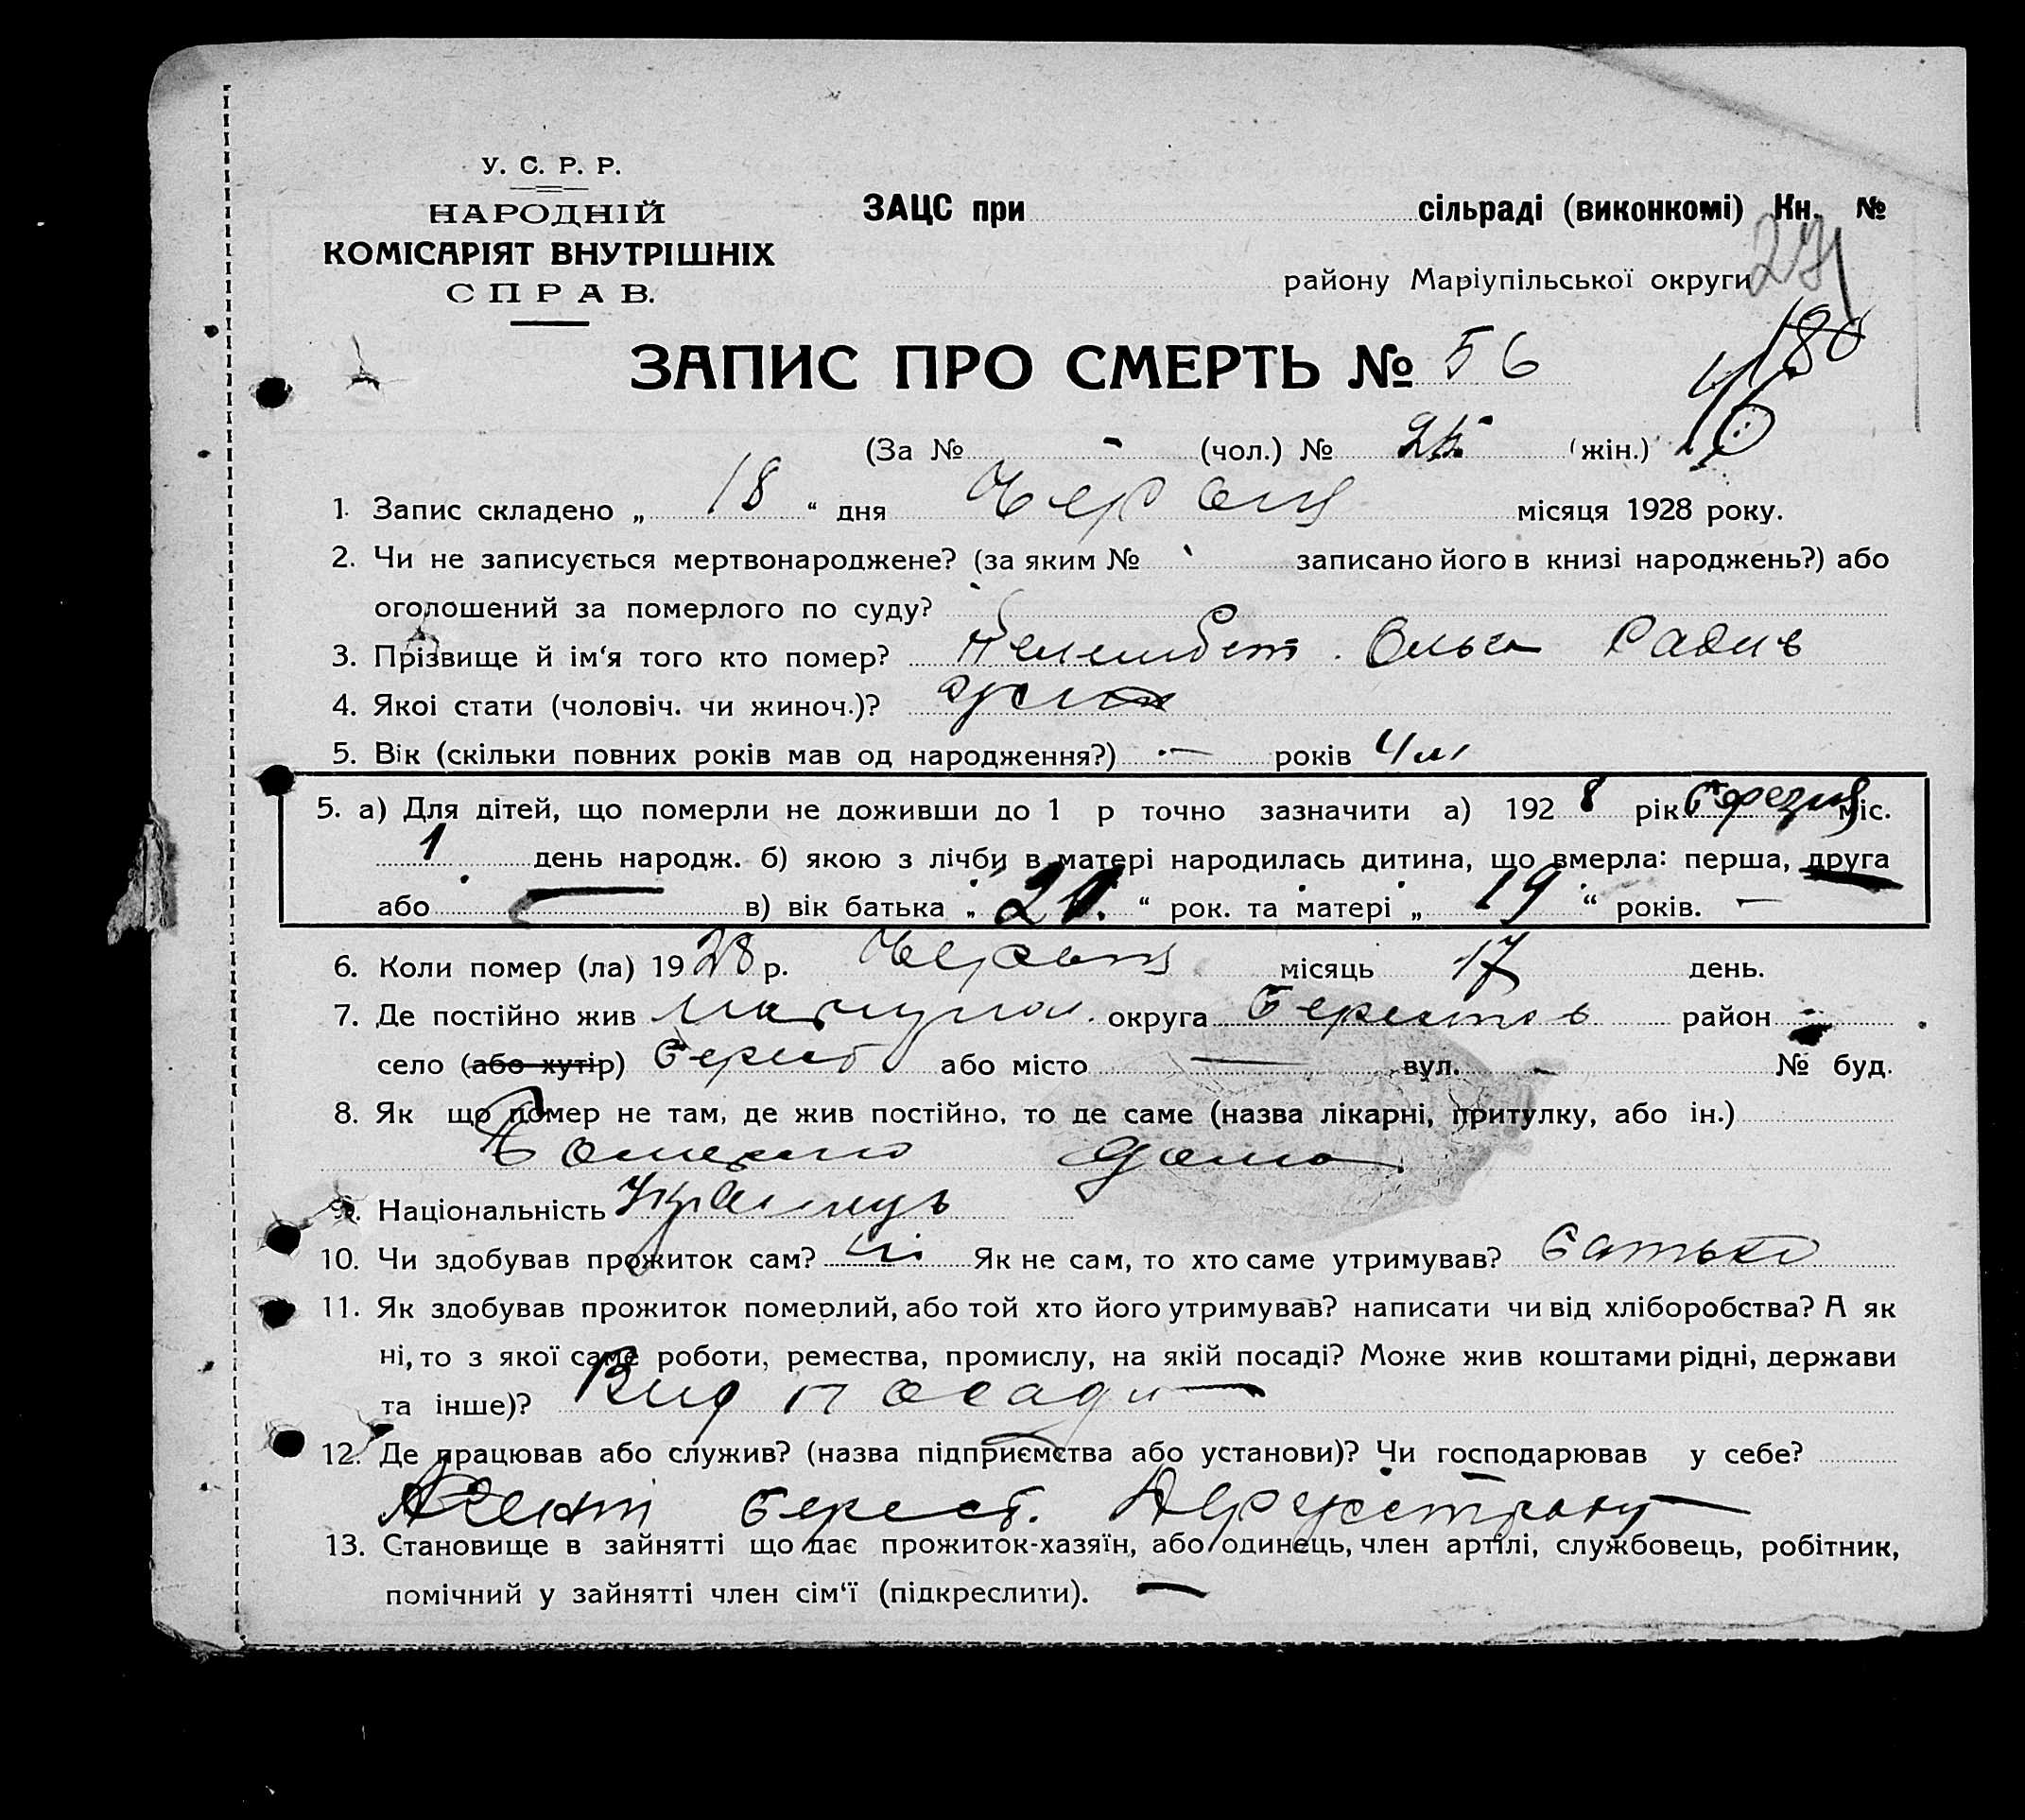 У. С. Р. Р.
НАРОДНІЙ
КОМІСАРІЯТ ВНУТРІШНІХ
СПРАВ.
ЗАЦС при сільраді (виконкомі) Кн. №
району Маріупільської округи
ЗАПИС ПРО СМЕРТЬ № 56
(За № - (чол.) № (жін.)
1. Запис складено „ 18 “ дня Червня місяця 1928 року.
2. Чи не записується мертвонароджене? (за яким № записано його в книзі народжень?) або
оголошений за померлого по суду?
3. Прізвище й ім‘я того кто помер? Ольга
4. Якоі стати (чоловіч. чи жиноч.)?
5. Вік (скільки повних років мав од народження?) — років 4 м
5. а) Для дітей, що померли не доживши до 1 р точно зазначити а) 192 8 рік березня міс.
1 день народж. б) якою з лічби в матері народилась дитина, що вмерла: перша, друга
або — в) вік батька „ “ рок. та матері „ 19 “ років. —
6. Коли помер (ла) 19 28 р. Червня місяць 17 день.
7. Де постійно жив округа район
село (або хутір) або місто — вул. - № буд.
8. Як що помер не там, де жив постійно, то де саме (назва лікарні, притулку, або ін.)
дома
9. Національність
10. Чи здобував прожиток сам? ні Як не сам, то хто саме утримував? батько
11. Як здобував прожиток померлий, або той хто його утримував? написати чи від хліборобства? А як
ні, то з якої саме роботи, ремества, промислу, на якій посаді? Може жив коштами рідні, держави
та інше)? Від посади
12. Де працював або служив? (назва підприємства або установи)? Чи господарював у себе?
Агент Берест. Держстраху
13. Становище в зайнятті що дає прожиток-хазяїн, або одинець, член артілі, службовець, робітник,
помічний у зайнятті член сім‘ї (підкреслити). —